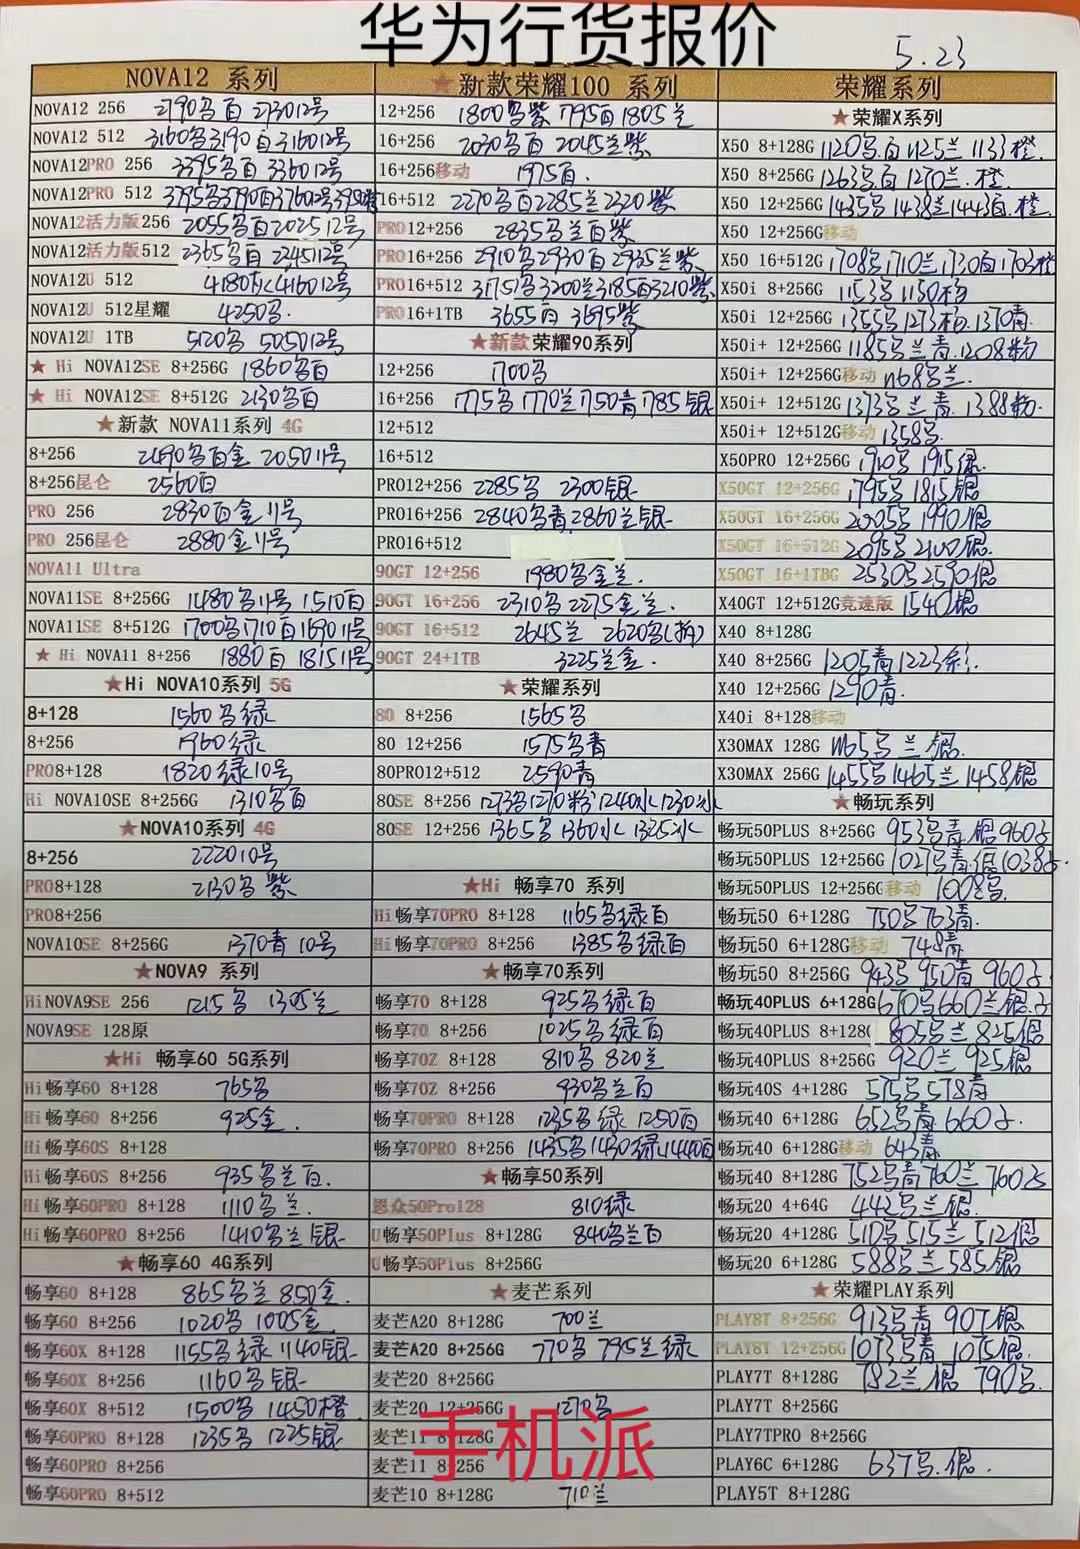 华为行货报价
5.23
NOVA12 系列
NOVA12 256 2790多白 2730 12号
NOVA12 512 3160多3190白3160 12号
NOVA12PRO 256 3395多白 3360 12号
NOVA12PRO 512 3795多3790白3760 12号
NOVA12活力版256 2055多白2025 12号
NOVA12活力版512 2365多白 2245 12号
NOVA12U 512 4160 12号
NOVA12U 512星耀 4250多.
NOVA12U 1TB 5120多 5050 12号
★ Hi NOVA12SE 8+256G 1860多白
★ Hi NOVA12SE 8+512G 2130多白
★新款 NOVA11系列 4G
8+256 2490多白金 2050 11号
8+256昆仑 2560白
PRO 256 2830白金 11号
PRO 256昆仑 2880金 11号
NOVA11 Ultra
NOVA11SE 8+256G 1480多 11号 1510白
NOVA11SE 8+512G 1700多1710白1690 11号
★ Hi NOVA11 8+256 1880白 1815 11号
★Hi NOVA10系列 5G
8+128 1560多绿
8+256 1960绿
PRO8+128 1820绿10号
Hi NOVA10SE 8+256G 1310多白
★NOVA10系列 4G
8+256 2220 10号
PRO8+128 2130多紫
PRO8+256
NOVA10SE 8+256G 1370青 10号
★NOVA9 系列
HiNOVA9SE 256 1215多 1305兰
NOVA9SE 128原
★Hi 畅享60 5G系列
Hi畅享60 8+128 765多
Hi畅享60 8+256 925金.
Hi畅享60S 8+128
Hi畅享60S 8+256 935多兰白.
Hi畅享60PRO 8+128 1110多兰.
Hi畅享60PRO 8+256 1410多兰银
★畅享60 4G系列
畅享60 8+128 865多兰 850金.
畅享60 8+256 1020多 1005金
畅享60X 8+128 1155多绿 1140银
畅享60X 8+256 1160多银
畅享60X 8+512 1500多 1450橙
畅享60PRO 8+128 1235多 1225银
畅享60PRO 8+256
畅享60PRO 8+512
★新款荣耀100 系列
12+256 1800多紫 1795白1805兰
16+256 2030多白 2045兰紫
16+256移动 1975白.
16+512 2270多白2285兰2320紫
PRO12+256 2835多兰白紫
PRO16+256 2910多2930白2935兰紫
PRO16+512 3175多3200兰3185白3210紫
PRO16+1TB 3655白 3695紫
★新款荣耀90系列
12+256 1700多
16+256 1775多1770兰1750青1785银
12+512
16+512
PRO12+256 2285多 2300银
PRO16+256 2840多青2860兰银
PRO16+512
90GT 12+256 1980多金兰.
90GT 16+256 2310多2275金兰.
90GT 16+512 2645兰 2620多(拆)
90GT 24+1TB 3225兰金.
★荣耀系列
80 8+256 1565多
80 12+256 1575多青
80PRO12+512 2590青
80SE 8+256 1273多1270粉1240冰1230冰
80SE 12+256 1365多1360冰 1325冰
★Hi 畅享70 系列
Hi畅享70PRO 8+128 1165多绿白
Hi畅享70PRO 8+256 1385多绿白
★畅享70系列
畅享70 8+128 925多绿白
畅享70 8+256 1025多绿白
畅享70Z 8+128 810多 820兰
畅享70Z 8+256 930多兰白
畅享70PRO 8+128 1235多绿 1250白
畅享70PRO 8+256 1435多1430绿1440白
★畅享50系列
50Pro128 810绿
U畅享50Plus 8+128G 840多兰白
U畅享50Plus 8+256G
★麦芒系列
麦芒A20 8+128G 700兰
麦芒A20 8+256G 770多 795兰绿
麦芒20 8+256G
麦芒20 12+256G 1270多
麦芒11 8+128G
麦芒11 8+256
麦芒10 8+128G 710兰
手机派
荣耀系列
★荣耀X系列
X50 8+128G 1120多.白1125兰 1133橙.
X50 8+256G 1263多.白1270兰.橙.
X50 12+256G 1435多1438兰1443白.橙
X50 12+256G移动
X50 16+512G 1708多1710兰1730白1703橙
X50i 8+256G 1153多1150粉
X50i 12+256G 1355多1273粉.1370青.
X50i+ 12+256G 1185多兰青.1208粉
X50i+ 12+256G移动 1168多兰.
X50i+ 12+512G 1373多兰青.1388粉.
X50i+ 12+512G移动 1358多.
X50PRO 12+256G 1910多 1915绿.
X50GT 12+256G 1795多 1815银
X50GT 16+256G 2005多 1990银
X50GT 16+512G 2095多 2100银.
X50GT 16+1TBG 2530多2590银
X40GT 12+512G竞速版 1540银
X40 8+128G
X40 8+256G 1205青1223彩.
X40 12+256G 1290青.
X40i 8+128移动
X30MAX 128G 1165多兰.银.
X30MAX 256G 1455多1465兰1458银
★畅玩系列
畅玩50PLUS 8+256G 953多青.银960
畅玩50PLUS 12+256G 1027多青.银1038
畅玩50PLUS 12+256G移动 1008多.
畅玩50 6+128G 750多763青.
畅玩50 6+128G移动 748青
畅玩50 8+256G 943多 950青 960
畅玩40PLUS 6+128G 670多660兰.银.
畅玩40PLUS 8+128G 805多兰 825银
畅玩40PLUS 8+256G 920兰 925银.
畅玩40S 4+128G 575多578青
畅玩40 6+128G 652多青 660
畅玩40 6+128G移动 643青.
畅玩40 8+128G 752多青760兰 760
畅玩20 4+64G 442多兰银.
畅玩20 4+128G 510多515兰 512银
畅玩20 6+128G 588多兰 585银
★荣耀PLAY系列
PLAY8T 8+256G 913多青 907银
PLAY8T 12+256G 1073多青 1075银.
PLAY7T 8+128G 782兰 银 790多.
PLAY7T 8+256G
PLAY7TPRO 8+256G
PLAY6C 6+128G 637多.银.
PLAY5T 8+128G